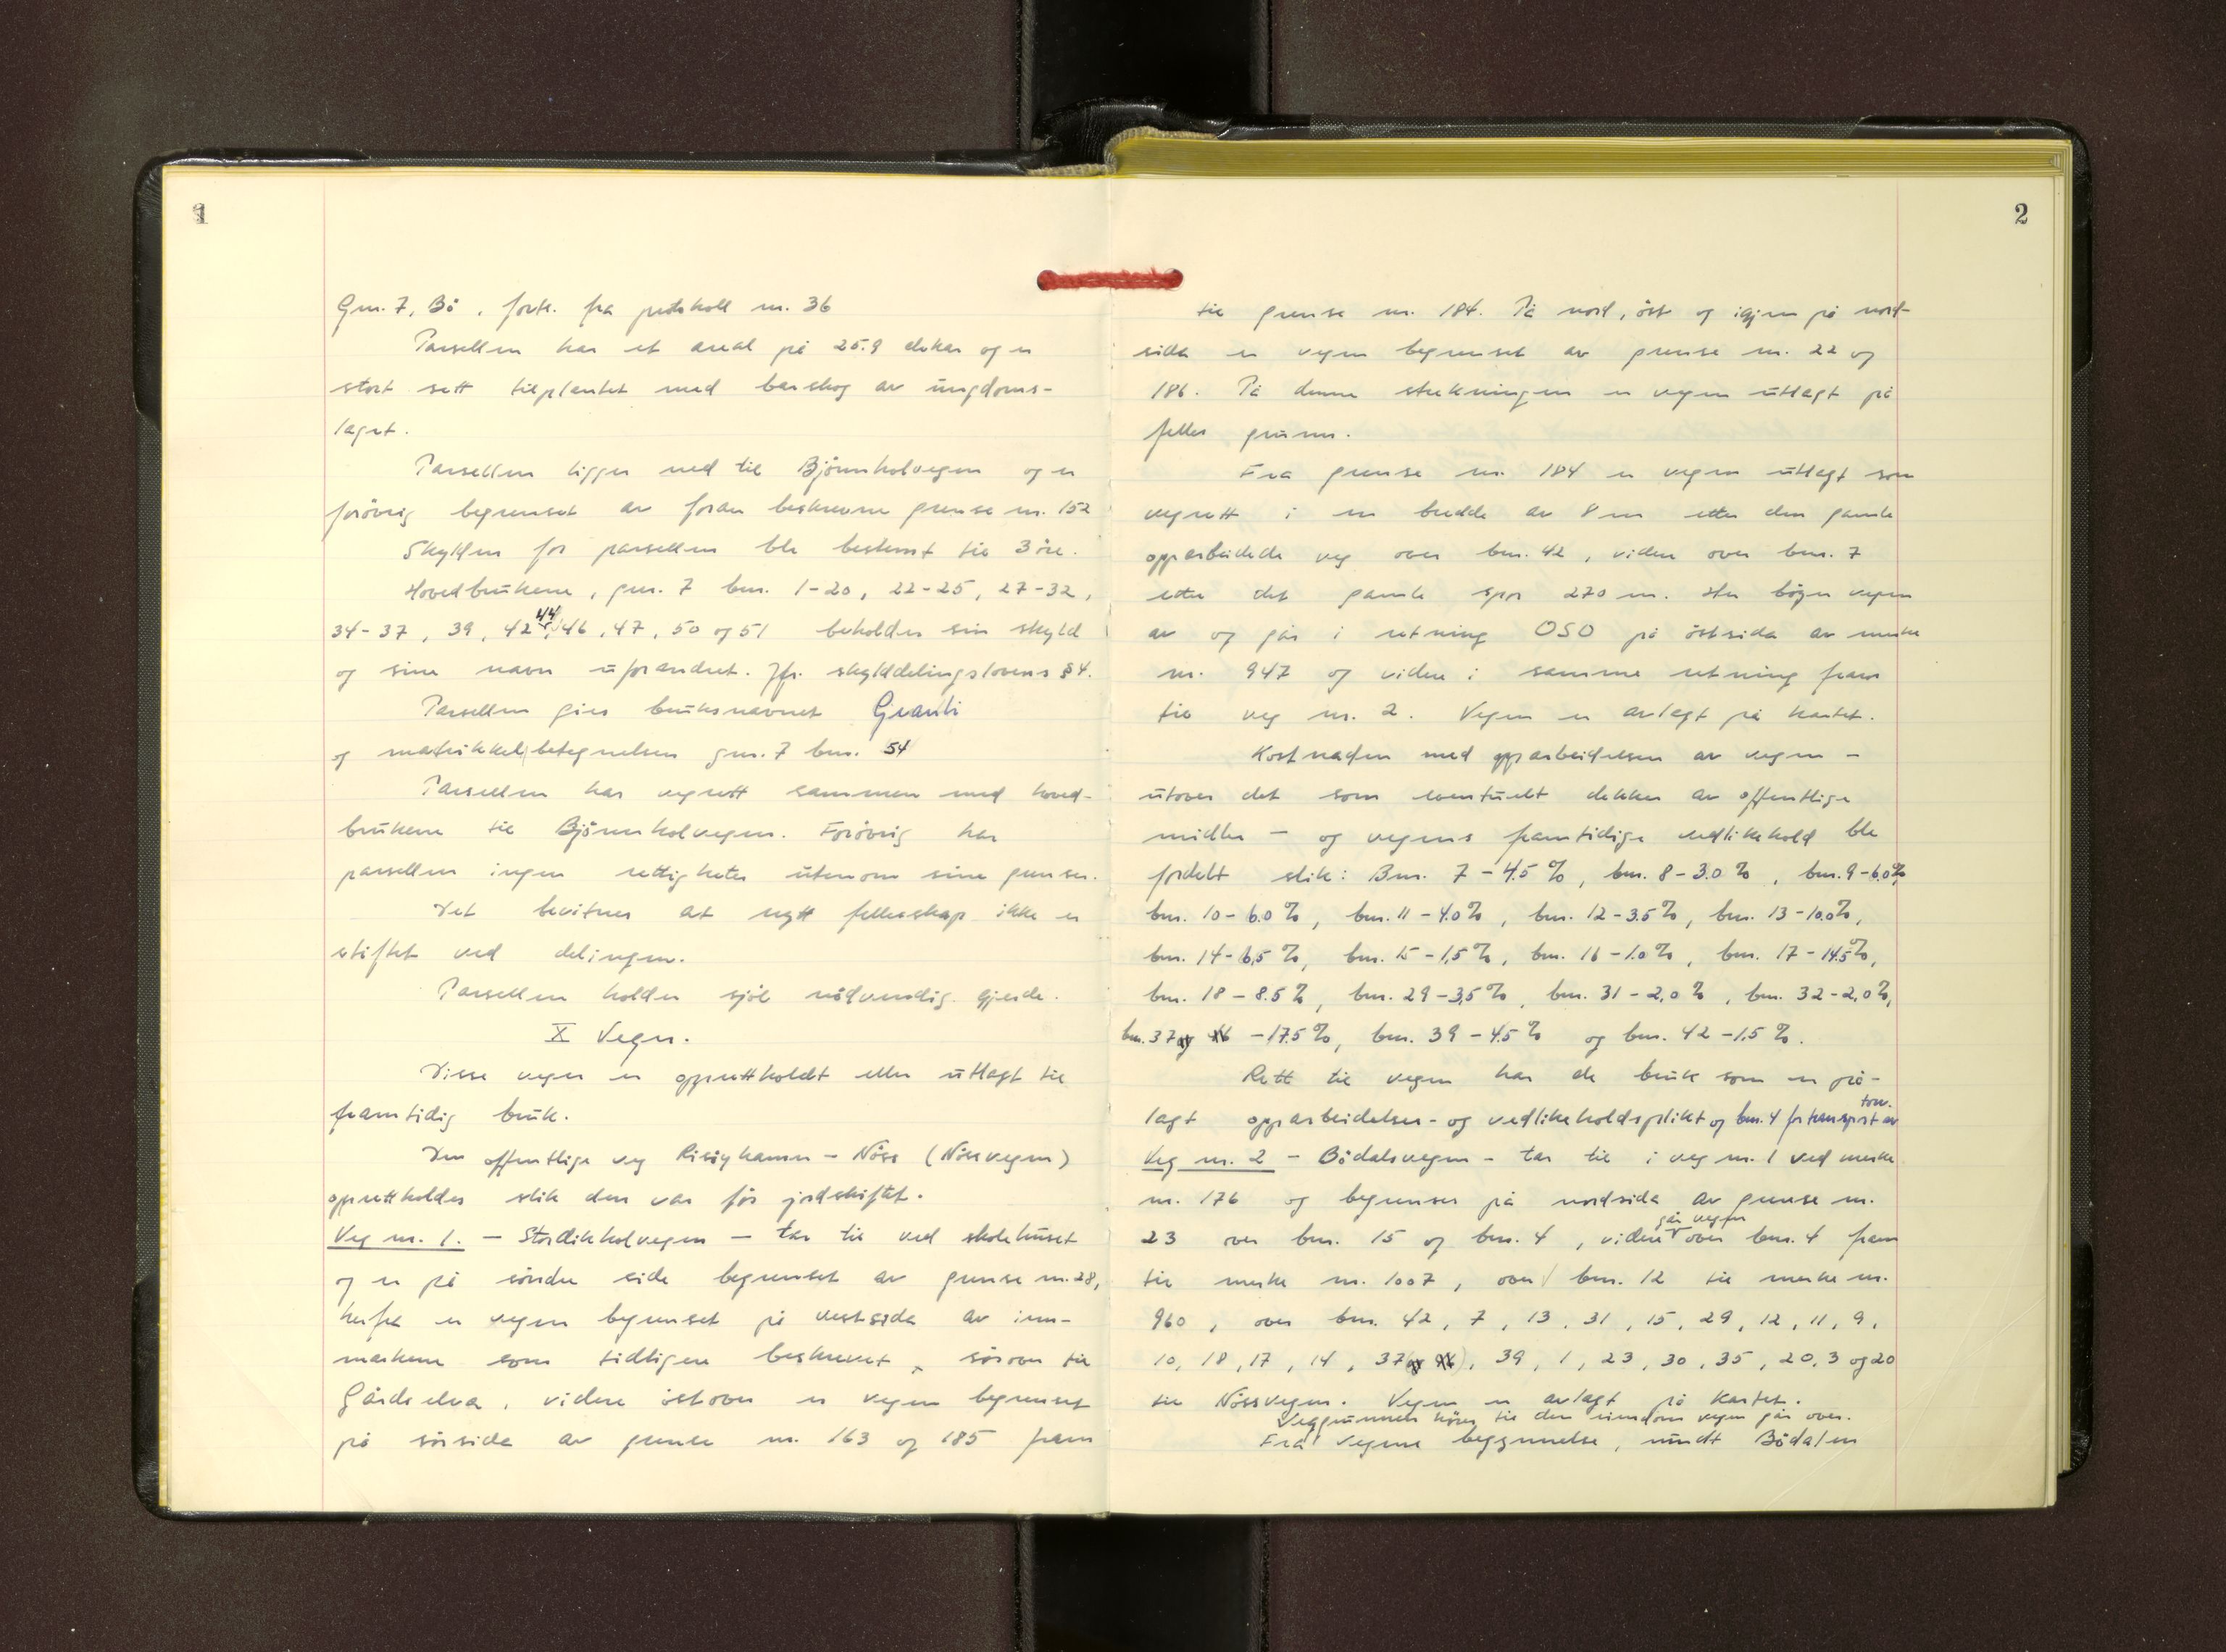 1
Gnr. 7, Bö, forts. fra protokoll nr. 36
Parsellen har et areal på 25.9 dekar og er
stort sett tilplantet med barskog av ungdoms-
laget.
Parsellen ligger ned til Björnholvegen og er
forövrig begrenset av foran beskrevne grense nr. 152
Skylden for parsellen ble bestemt til 3 öre.
Hovedbrukene, gnr. 7 bnr. 1-20, 22-25, 27-32,
34-37, 39, 42, 44, 46, 47, 50 og 51 beholder sin skyld
og sine navn uforandret. Jfr. skylddelingslovens § 4.
Parsellen gies bruksnavnet Granli
og matrikkelbetegnelsen gnr. 7 bnr. 54
Parsellen har vegrett sammen med hoved-
brukene til Björnholvegen. Forövrig har
parsellen ingen rettigheter utenom sine grenser.
Det bevitnes at nytt fellesskap ikke er
stiftet ved delingen.
Parsellen holder sjöl nödvendig gjerde.
X Veger.
Disse veger er opprettholdt eller utlagt til
framtidig bruk.
Den offentlige veg Risöyhamn - Nöss (Nössvegen)
opprettholdes slik den var för jordskiftet.
Veg nr. 1. - Stordikholvegen - tar til ved skolehuset
og er på söndre side begrenset av grense nr. 28,
herfra er vegen begrenset på vestsida av inn-
markene som tidligere beskrevet, söröver til
Gårdselva, videre östover er vegen begrenset
på sörsida av grense nr. 163 og 185 fram
2
til grense nr. 184. På nord, öst og igjen på nord-
sida er vegen begrenset av grense nr. 22 og
186. På denne strekningen er vegen utlagt på
felles grunn.
Fra grense nr. 184 er vegen utlagt som
vegrett i en bredde av 8 m etter den gamle
opparbeidede veg over bnr. 42, videre over bnr. 7
etter det gamle spor 270 m. Her böyer vegen
av og går i retning OSO på östsida av merke
nr. 947 og videre i samme retning fram
til veg nr. 2. Vegen er avlagt på kartet.
Kostnaden med opparbeidelsen av vegen -
utover det som eventuelt dekkes av offentlige
midler - og vegens framtidige vedlikehold ble
fordelt slik: Bnr. 7 - 4.5 %, bnr. 8 - 3.0 %, bnr. 9 - 6.0 %,
bnr. 10 - 6.0 %, bnr. 11 - 4.0 %, bnr. 12 - 3.5 %, bnr. 13 - 10.0 %,
bnr. 14 - 6,5 %, bnr. 15 - 1,5 %, bnr. 16 - 1.0 %, bnr. 17 - 14.5 %,
bnr. 18 - 8.5 %, bnr. 29 - 3,5 %, bnr. 31 - 2,0 %, bnr. 32 - 2,0 %,
bnr. 37 - 17.5 %, bnr. 39 - 4.5 % og bnr. 42 - 1.5 %.
Rett til vegen har de bruk som er på-
lagt opparbeidelses- og vedlikeholdsplikt og bnr. 4 for transport av torv.
Veg nr. 2 - Bödalsvegen - tar til i veg nr. 1 ved merke
nr. 176 og begrenses på nordsida av grense nr.
23 over bnr. 15 og bnr. 4, videre går vegen over bnr. 4 fram
til merke nr. 1007, over bnr. 12 til merke nr.
960, over bnr. 42, 7, 13, 31, 15, 29, 12, 11, 9,
10, 18, 17, 14, 37, 39, 1, 23, 30, 35, 20, 3 og 20
til Nössvegen. Vegen er avlagt på kartet.
Veggrunnen hörer til den eiendom vegen går over.
Fra vegens begynnelse, rundt Bödalen